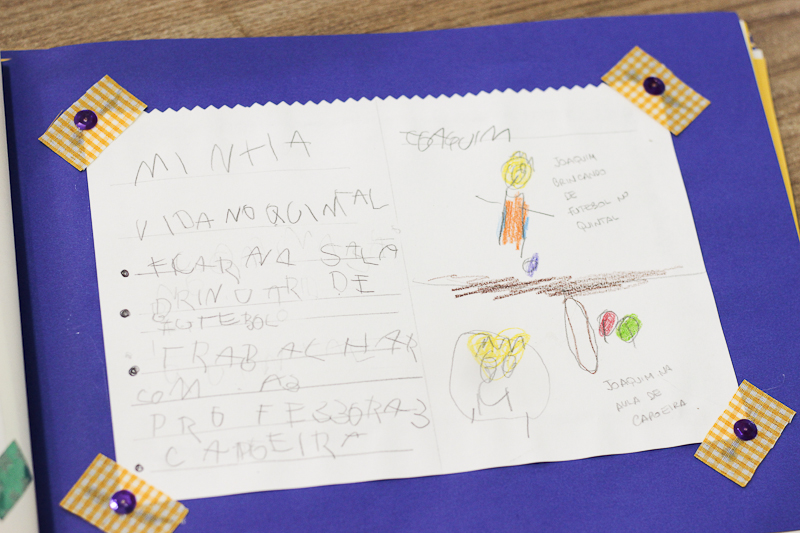 MINHIA
VIDA NO QUINTAL
FICAR NA SALA
BRINCAR DE
FUTEBOL
TRABALHAR
COM AS
PROFESSORAS
CAPOEIRA
JOAQUIM
JOAQUIM
BRINCANDO
DE
FUTEBOL NO
QUINTAL
JOAQUIM NA
AULA DE
CAPOEIRA